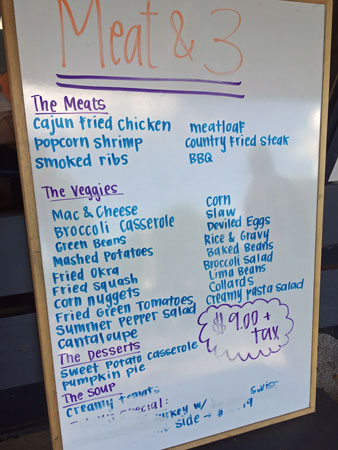 Meat & 3
The Meats
Cajun Fried Chicken
popcorn shrimp
smoked ribs
meatloaf
country fried steak
BBQ
The Veggies
Mac & Cheese
Broccoli Casserole
Green Beans
Mashed Potatoes
Fried Okra
Fried Squash
Corn nuggets
Fried Green Tomatoes
Summer Pepper Salad
Cantaloupe
Corn
Slaw
Deviled Eggs
Rice & Gravy
Baked Beans
Broccoli Salad
Lima Beans
Collards
Creamy Pasta Salad
$9.00 +
tax
The Desserts
Sweet Potato Casserole
Pumpkin pie
The Soup
Creamy
special:
w/
side